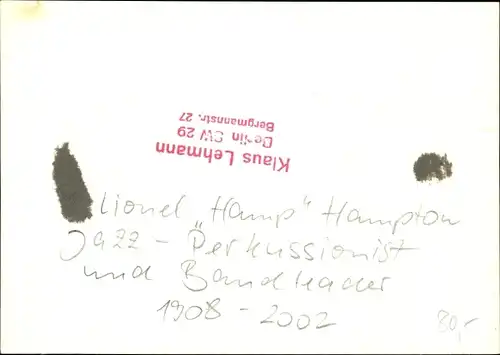 Klaus Lehmann
Berlin SW 29
Bergmannstr. 27
Lionel „Hamp" Hampton
Jazz - Perkussionist
und Bandleader
1908 - 2002
80,-